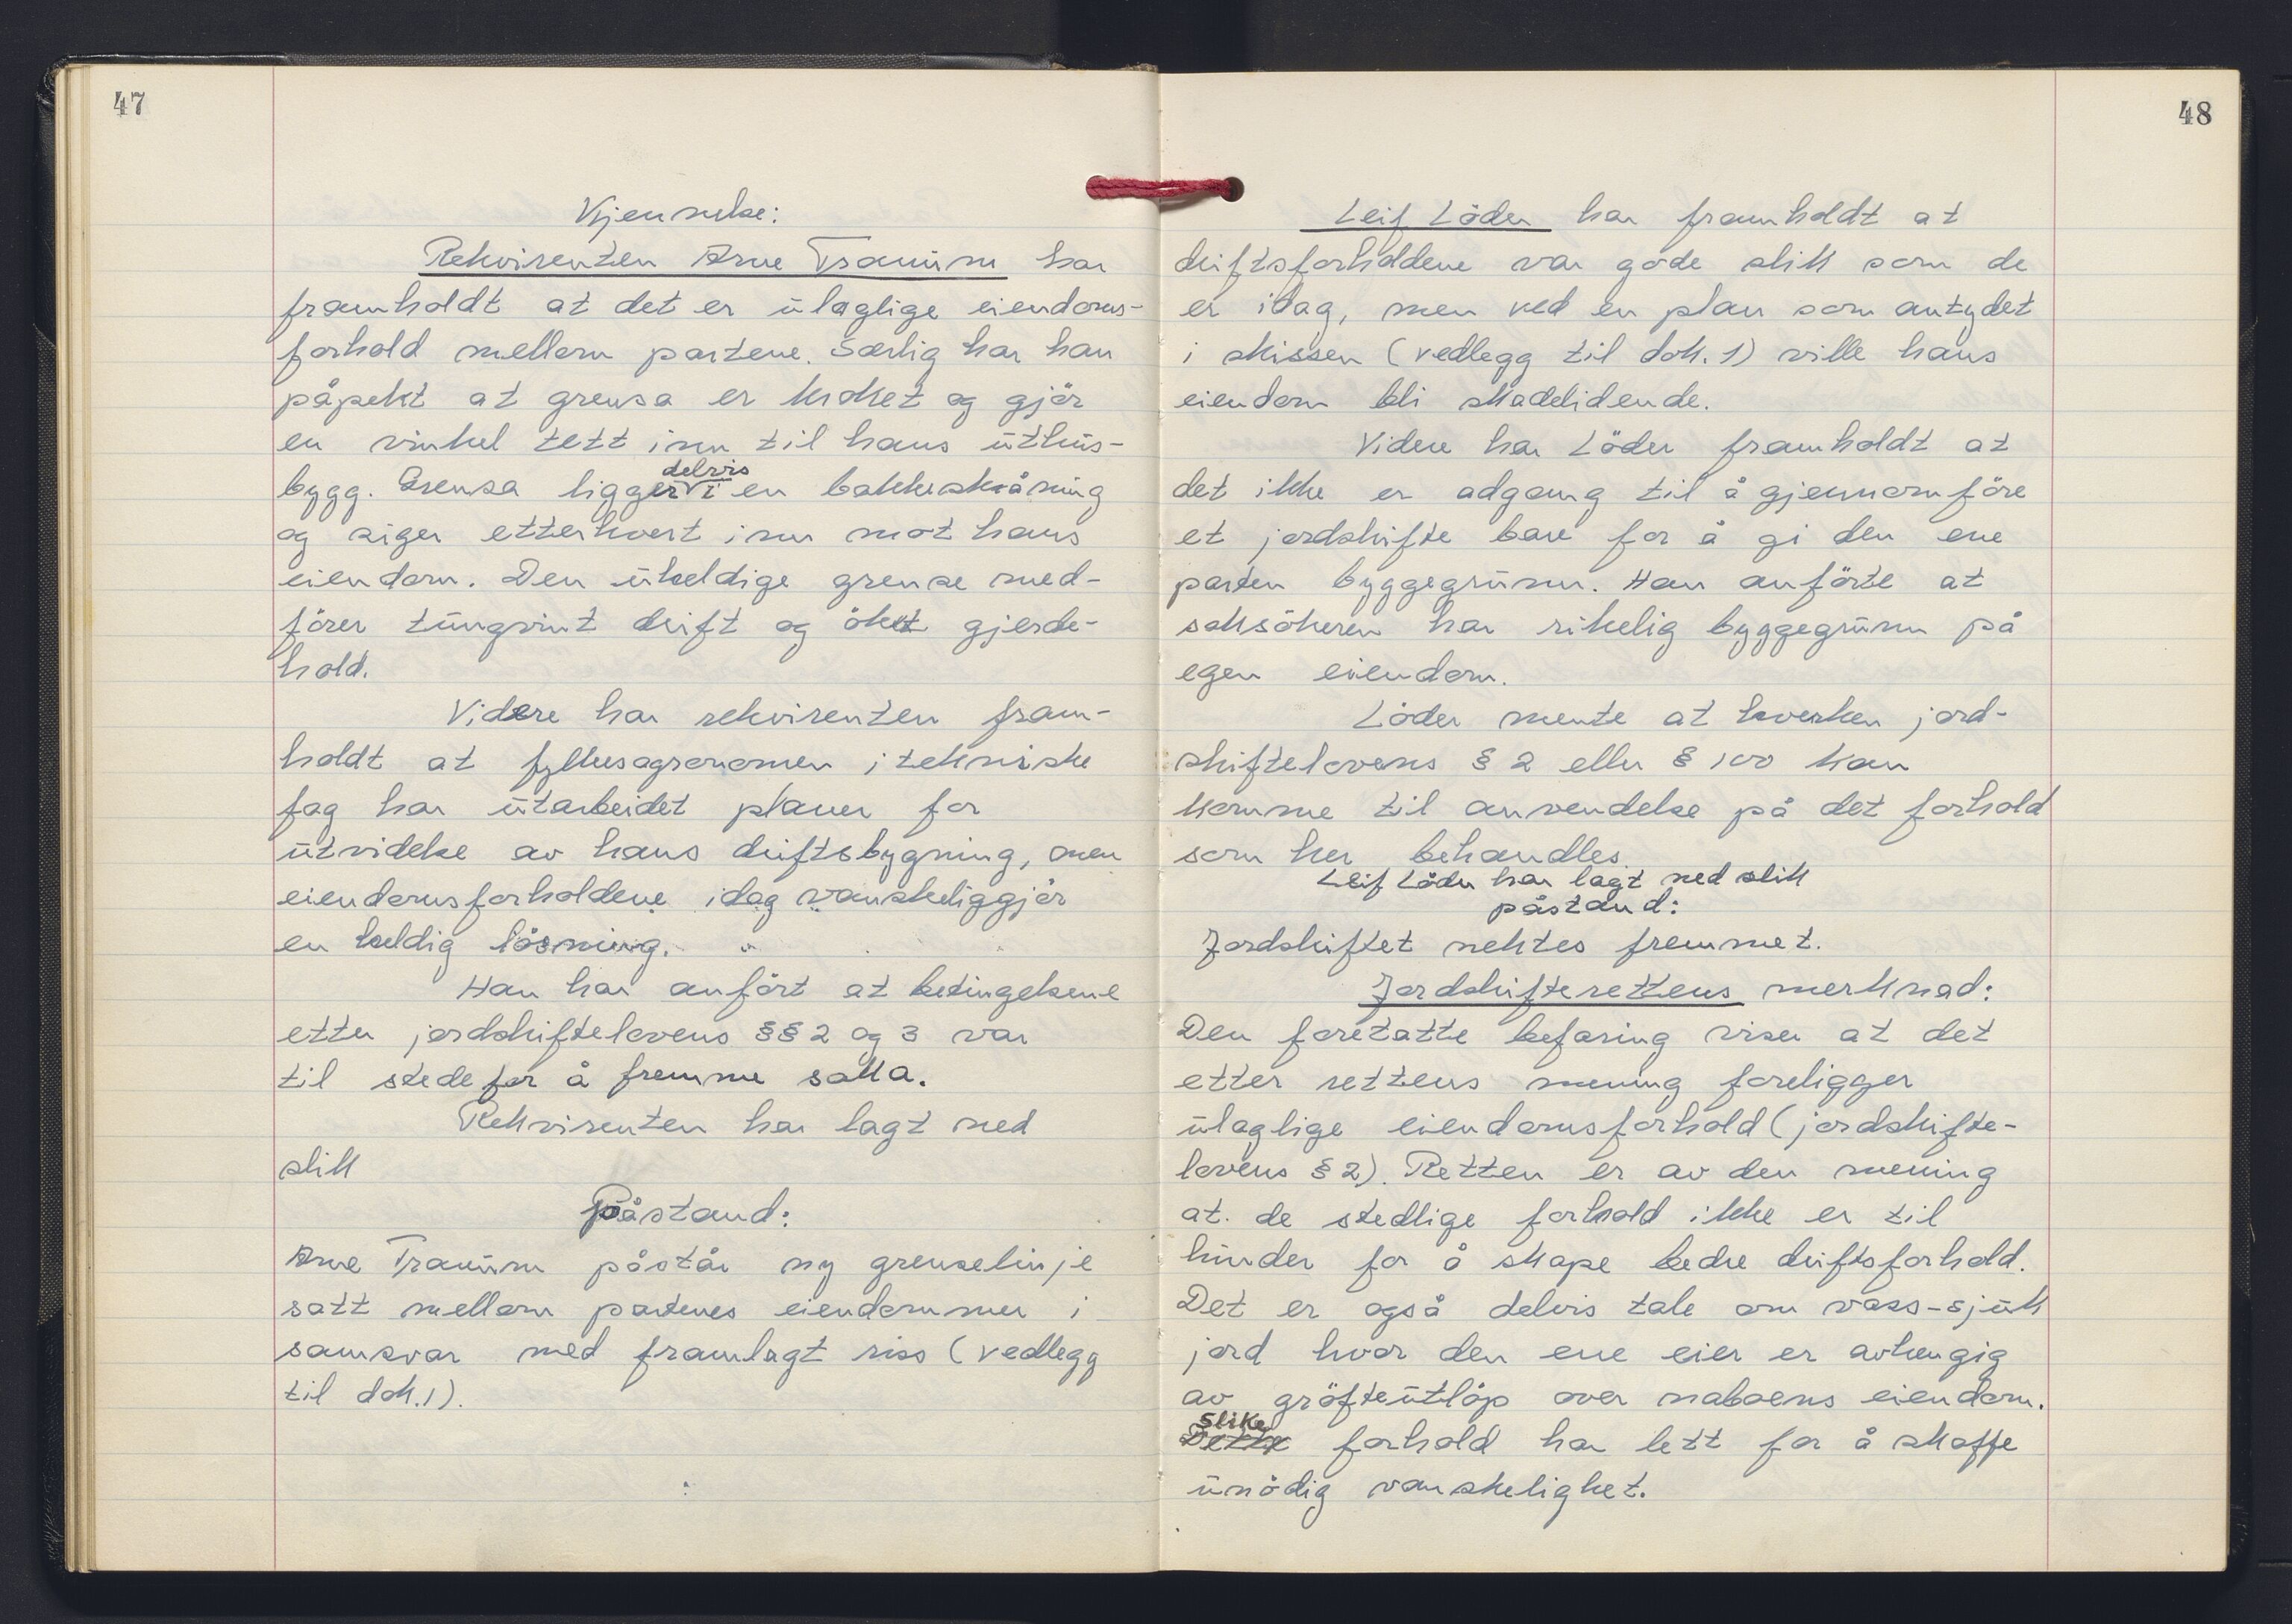 47
Kjennelse:
Rekvirenten Arne Traaum har
framholdt at det er ulaglige eiendoms-
forhold mellom partene. Særlig har han
påpekt at grensa er kroket og gjör
en vinkel tett inn til hans uthus-
delvis
bygg. Grensa ligger i en bakkeskråning
og siger etterhvert inn mot hans
eiendom. Den uheldige grense med-
förer tungvint drift og öket gjerde-
hold.
Videre har rekvirenten fram-
holdt at fylkesagronomen i tekniske
fag har utarbeidet planer for
utvidelse av hans driftsbygning, men
eiendomsforholdene idag vanskeliggjör
en heldig lösning.
Han har anfört at betingelsene
etter jordskiftelovens §§ 2 og 3 var
til stede for å fremme saka.
Rekvirenten har lagt ned
slik
Påstand:
Arne Traaum påstår ny grenselinje
satt mellom partenes eiendommer i
samsvar med framlagt riss (vedlegg
til dok.1).
48
Leif Löder har framholdt at
driftsforholdene var gode slik som de
er idag, men ved en plan som antydet
i skissen (vedlegg til dok. 1) ville hans
eiendom bli skadelidende.
Videre har Löder framholdt at
det ikke er adgang til å gjennomföre
et jordskifte bare for å gi den ene
parten byggegrunn. Han anförte at
saksökeren har rikelig byggegrunn på
egen eiendom.
Löder mente at hverken jord-
skiftelovens § 2 eller § 100 kan
komme til anvendelse på det forhold
som her behandles.
Leif Löder har lagt ned slik
påstand:
Jordskiftet nektes fremmet.
Jordskifterettens merknad:
Den foretatte befaring viser at det
etter rettens mening foreligger
ulaglige eiendomsforhold (jordskifte-
lovens § 2). Retten er av den mening
at de stedlige forhold ikke er til
hinder for å skape bedre driftsforhold.
Det er også delvis tale om vass-sjuk
jord hvor den ene eier er avhengig
av gröfteutlöp over naboens eiendom.
Slike
Dette forhold har lett for å skaffe
unödig vanskelighet.